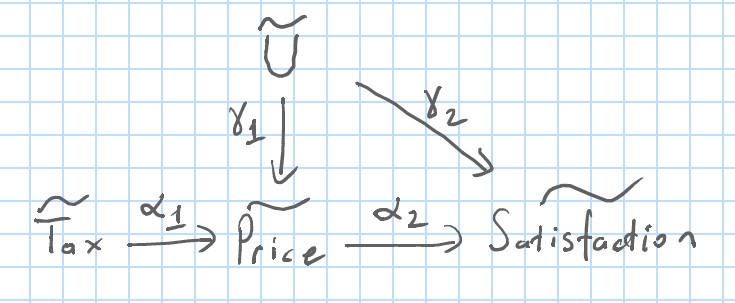 Ũ
γ1 γ2
T̃ax α1 P̃rice α2 S̃atisfaction